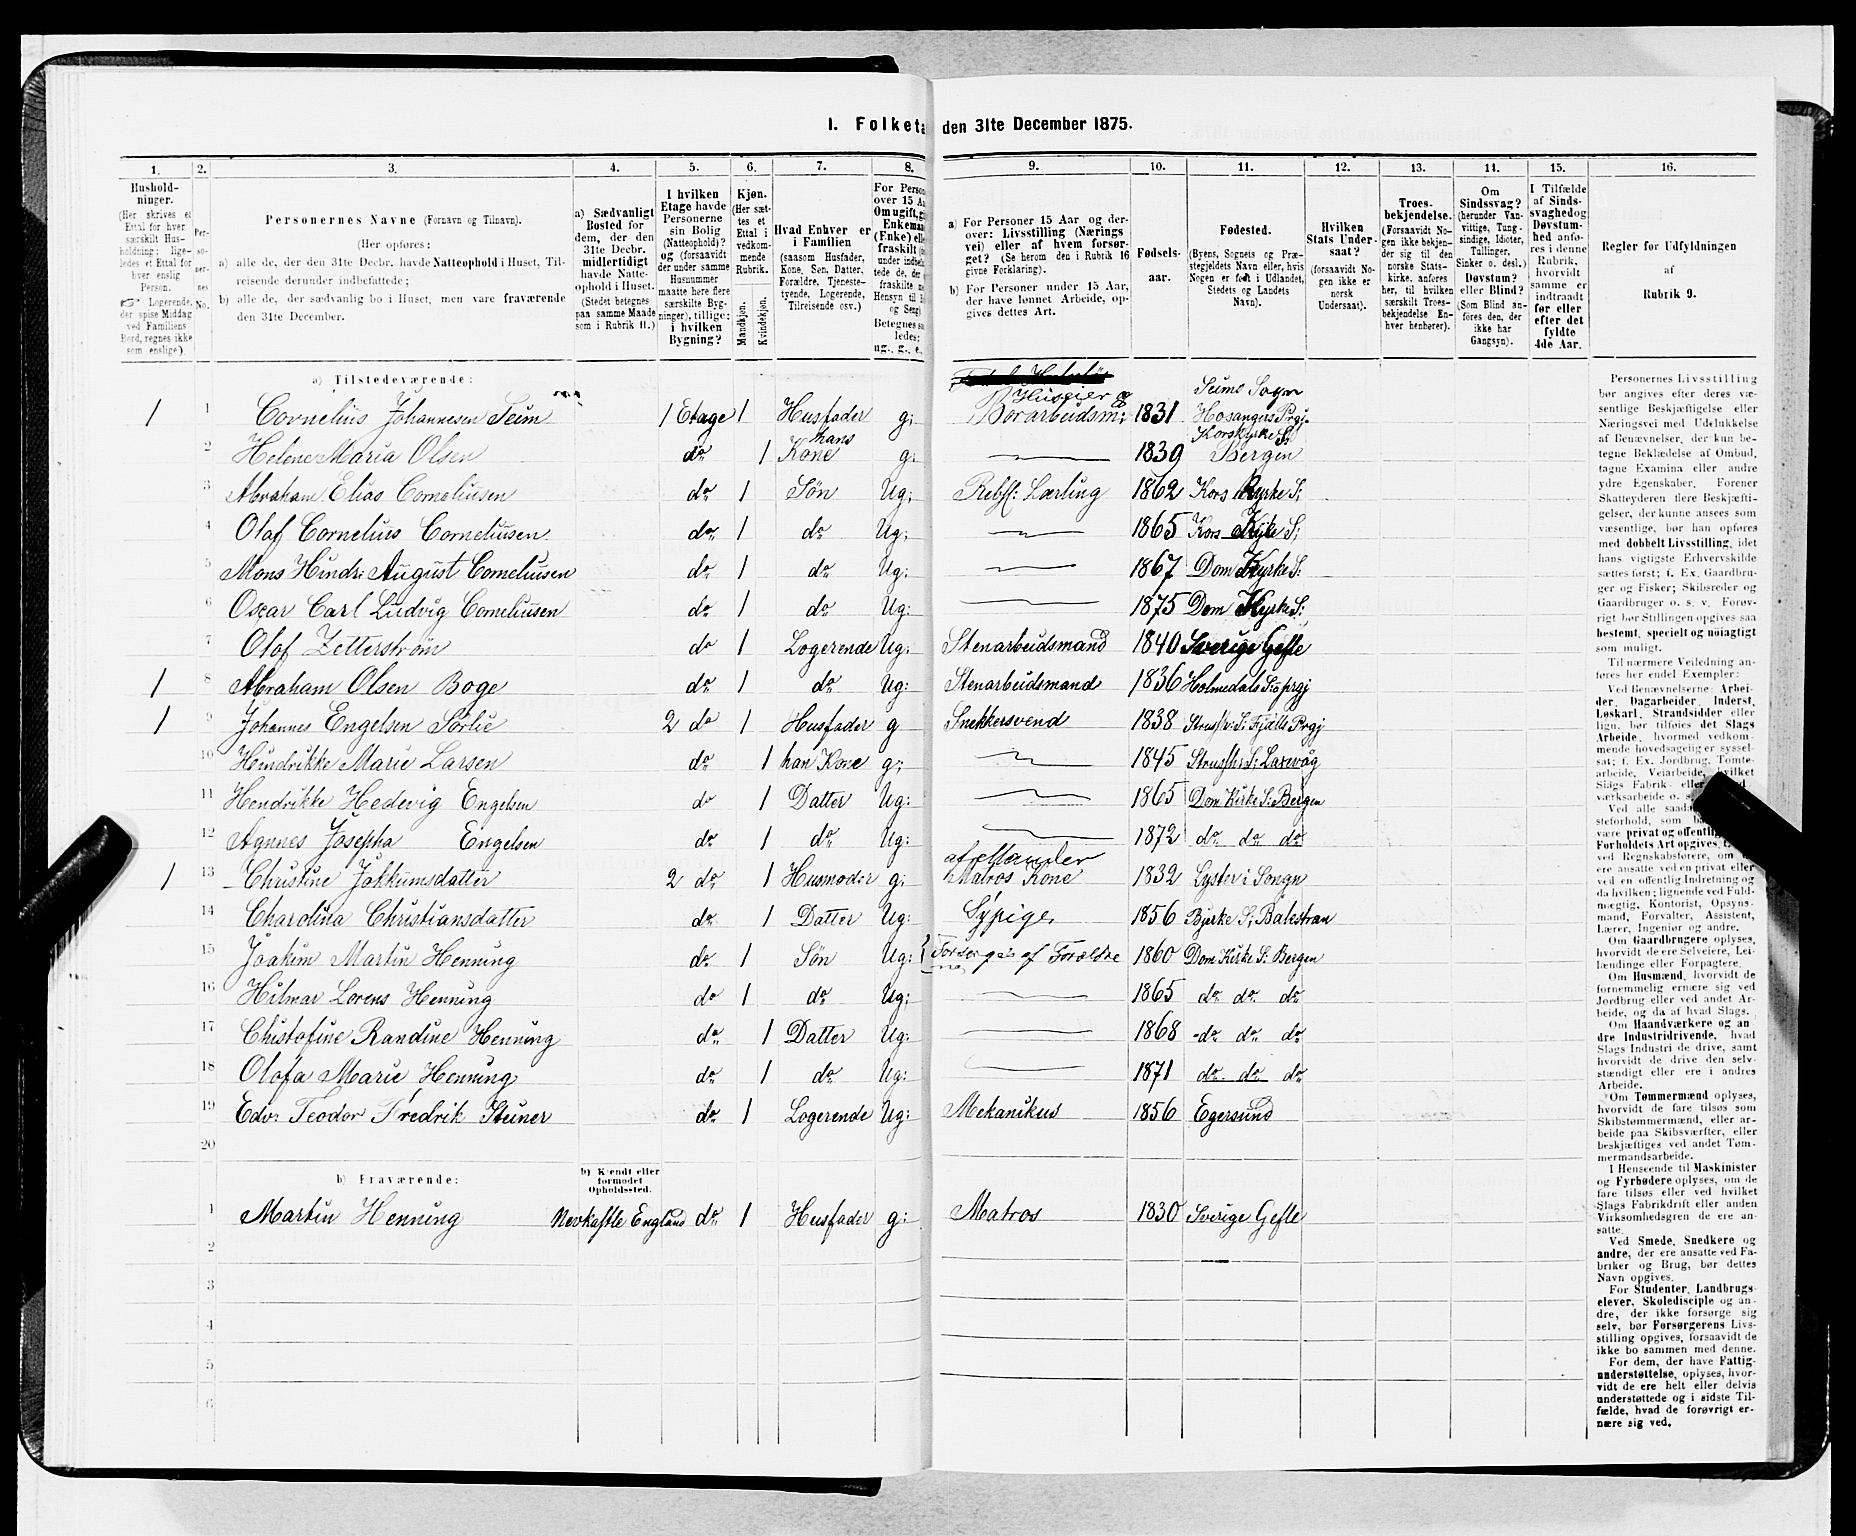 I. Folketa den 31te December 1875.
1. 2. 3. 4. 5. 6. 7. 8. 9. 10. 11. 12. 13. 14. 15. 16.
Hushold-
ninger.
(Her skrives et
Ettal for hver
særskilt Hus-
holdning; lige-
ledes et Ettal for
hver enslig
Person.
☞ Logerende,
der spise Middag
ved Familiens
Bord, regnes ikke
som enslige.)
Per-
so-
ner-
nes
No.
Personernes Navne (Fornavn og Tilnavn).
(Her opføres:
a) alle de, der den 31te Decbr. havde Natteophold i Huset, Til-
reisende derunder indbefattede;
b) alle de, der sædvanlig bo i Huset, men vare fraværende
den 31te December.
a) Sædvanligt
Bosted for
dem, der den
31te Decbr.
midlertidigt
havde Natte-
ophold i Huset.
(Stedet betegnes
paa samme Maade
som i Rubrik 11.)
I hvilken
Etage havde
Personerne
sin Bolig
(Natteophold)?
og (forsaavidt
der under samme
Husnummer
maatte høre flere
særskilte Byg-
ninger), tillige:
i hvilken
Bygning?
Kjøn.
(Her sæt-
tes et
Ettal i
vedkom-
mende
Rubrik.
Mandkjøn.
Kvindekjøn.
Hvad Enhver er
i Familien
(saasom Husfader,
Kone, Søn, Datter,
Forældre, Tjeneste-
tyende, Logerende,
Tilreisende osv.)
For Person
over 15 Aa
Om ugift, gi
Enkeman
(Enke) elle
fraskilt
under indbe
tede de, der
fraskilte
Hensyn til B
og Seng)
Betegnes saa
ledes:
ug., g., e.,
a) For Personer 15 Aar og der-
over: Livsstilling (Nærings
vei) eller af hvem forsør-
get? (Se herom den i Rubrik 16
givne Forklaring).
b) For Personer under 15 Aar,
der have lønnet Arbeide, op-
gives dettes Art.
Fødsels-
aar.
Fødested.
(Byens, Sognets og Præ-
stegjeldets Navn eller, hvis
Nogen er født i Udlandet,
Stedets og Landets
Navn).
Hvilken
Stats Under-
saat?
(forsaavidt No-
gen ikke er
norsk
Undersaat).
Troes-
bekjendelse.
(Forsaavidt No-
gen ikke bekjen-
der sig til den
norske Stats-
kirke, anføres
her, til hvilken
særskilt Troes-
bekjendelse En-
hver henhører).
Om
Sindssvag?
(herunder Van-
vittige, Tung-
sindige, Idioter,
Tullinger,
Sinker o. desl.)
Døvstum?
eller Blind?
(Som Blind an-
føres den, der
ikke har
Gangsyn).
I Tilfælde
af Sinds-
svaghed og
Døvstum-
hed anfø-
res i denne
Rubrik,
hvorvidt
samme er
indtraadt
før eller
efter det
fyldte
4de Aar.
Regler for Udfyldningen
af
Rubrik 9.
a) Tilstedeværende:
1 1 Cornelius Johannesen Seim 1 Etage 1 Husfader g; Huseier & Borarbeidsm: 1831 Seims Sogn Hosangers Prgj.
2 Helene Maria Olsen do 1 hans Kone g: 1839 Korskyrke S: Bergen
3 Abraham Elias Corneliusen do 1 Søn Ug; Rebsl: Lærling 1862 Kors Kyrke S;
4 Olaf Cornelius Corneliusen do 1 do Ug; 1865 Kors Kyke S;
5 Mons Hindr: August Corneliusen do 1 do Ug: 1867 Dom Kyrke S:
6 Oscar Carl Ludvig Corneliusen do 1 do Ug: 1875 Dom Kyrke S:
7 Olof Zetterstrøm do 1 Logerende Ug: Stenarbeidsmand 1840 Sverige Gefle
1 8 Abraham Olsen Boge do 1 do Ug: Stenarbeidsmand 1836 Holmedals S: o prgj
1 9 Johannes Engelsen Sørlie 2 do 1 Husfader g Snekkersvend 1838 Strus/h: S: Fjells Prgj
10 Hindrikke Marie Larsen do 1 han Kone g; 1845 Strus/h: S: Laxevåg
11 Hendrikke Hedevig Engelsen do 1 Datter Ug: 1865 Dom Kirke S: Bergen
12 Agnnes Josepha Engelsen do 1 do Ug: 1872 do do do
1 13 Christine Jokkumsdatter 2 do 1 Husmoder g; Matros Kone 1832 Lyster i Songn
14 Charolina Christiansdatter do 1 Datter Ug: Sypige 1856 Byrke S; Balestran
15 Joakim Martin Henning do 1 Søn Ug: Forsørges af Forældre ne 1860 Dom Kirke S: Bergen
16 Hilmar Lorens Henning do 1 do Ug: 1865 do do do
17 Christofine Randine Henning do 1 Datter Ug: 1868 do do do
18 Olofa Marie Henning do 1 do Ug: 1871 do do do
19 Edv: Teodor Fredrik Steiner do 1 Logerende Ug: Mekanikus 1856 Egersund
20
b) Fraværende:
b) Kjendt eller
formodet
Opholdssted.
1 Martin Henning Nevkastle England do 1 Husfader g: Matros 1830 Sverige Gefle
2
3
4
5
6
Personernes Livsstilling
bør angives efter deres væ-
sentlige Beskjæftigelse eller
Næringsvei med Udelukkelse
af Benævnelser, der kun be-
tegne Beklædelse af Ombud,
tagne Examina eller andre
ydre Egenskaber. Forener
Skatteyderen flere Beskjæfti-
gelser, der kunne ansees som
væsentlige, bør han opføres
med dobbelt Livsstilling, idet
hans vigtigste Erhvervskilde
sættes først; f. Ex. Gaardbru-
ger og Fisker; Skibsreder og
Gaardbruger o. s. v. Forøv-
rigt bør Stillingen opgives saa
bestemt, specielt og nøiagtigt
som muligt.
Til nærmere Veiledning an-
føres her endel Exempler:
Ved Benævnelserne: Arbei-
der, Dagarbeider, Inderst,
Løskarl, Strandsidder eller
lign. bør tilføies det Slags
Arbeide, hvormed vedkom-
mende hovedsagelig er syssel-
sat; f. Ex. Jordbrug, Tomte-
arbeide, Veiarbeide, hvilket
Slags Fabrik
værksarbeide o. s.
Ved alle
steforhold, som
være privat og offentlig,
Forholdets Art opgives,
ved Regnskabsførere, om
ere ansatte ved en privat eller
ved en offentlig Indretning og
da hvilken; lignende ved Fuld-
mægtig, Kontorist, Opsyns-
mand, Forvalter, Assistent,
Lærer, Ingeniør og andre.
Om Gaardbrugere oplyses,
hvorvidt de ere Selveiere, Lei-
lændinge eller Forpagtere.
Om Husmænd, hvorvidt de
fornemmelig ernære sig ved
Jordbrug eller ved andet Ar-
beide, og da af hvad Slags.
Om Haandværkere og an
dre Industridrivende, hvad
Slags Industri de drive, samt
hvorvidt de drive den selv-
stændigt eller ere i andres
Arbeide.
Om Tømmermænd oplyses,
hvorvidt de fare tilsøs som
Skibstømmermænd, eller ar-
beide paa Skibsværfter, eller
beskjæftiges ved andet Tøm-
mermandsarbeide.
I Henseende til Maskinister
og Fyrbødere oplyses, om de
fare tilsøs eller ved hvilket
Slags Fabrikdrift eller anden
Virksomhedsgren de ere an-
satte.
Ved Smede, Snedkere og
andre, der ere ansatte ved Fa-
briker og Brug, bør dettes
Navn opgives.
For Studenter, Landbrugs-
elever, Skoledisciple og an-
dre, der ikke forsørge sig
selv, bør Forsørgerens Livs-
stilling opgives, forsaavidt de
ikke bo sammen med denne.
For dem, der have Fattig-
understøttelse, oplyses, hvor-
vidt de ere helt eller delvis
understøttede og i sidste Til-
fælde, hvad de forøvrigt er-
nære sig ved.